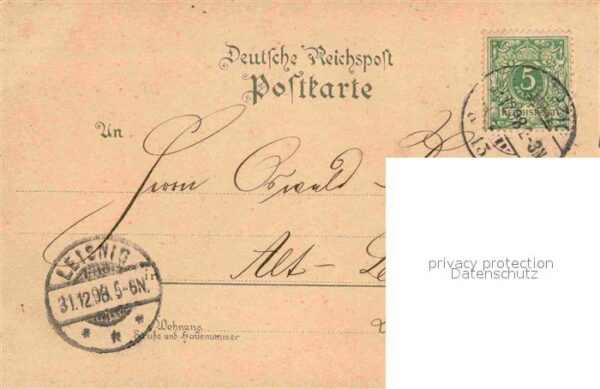 Deutsche Reichspost
Postkarte
5
An
Herrn Oswald
Alt-
in
LEISNIG
31.12.98. 5-6N.
Wohnung
Straße und Hausnummer
privacy protection
Datenschutz